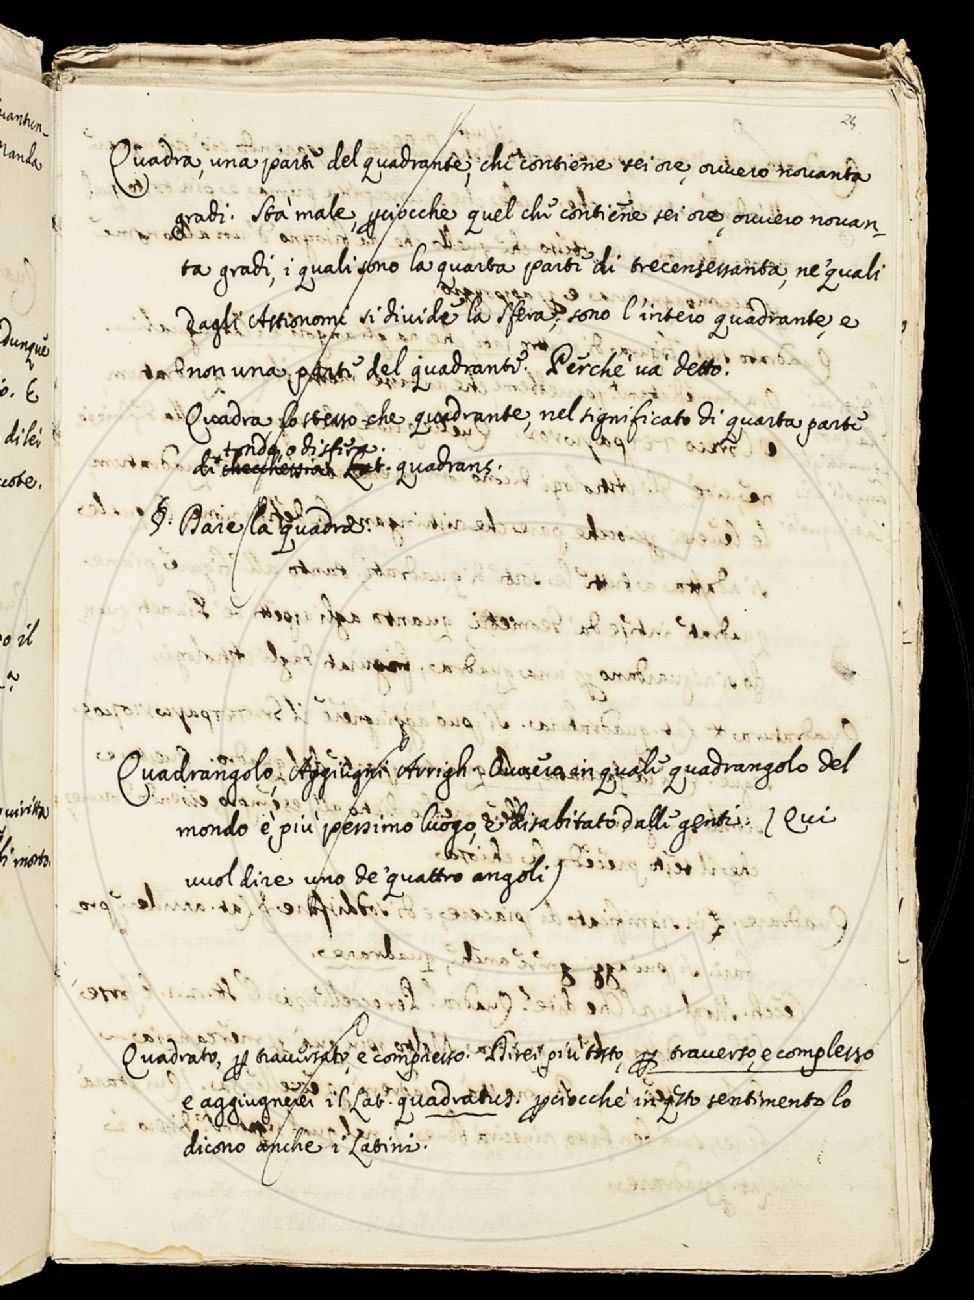 24
Quadra, una parte del quadrante, che contiene sei ore, ovvero novanta
gradi. Sta male, ꝑciocche quel che contiene sei ore, ovvero novan-
ta gradi, i quali sono la quarta parte di trecensessanta, ne' quali
dagli Astronomi si divide la sfera, sono l'intero quadrante, e
non una parte del quadrante. Perche va detto.
Quadra lo stesso che quadrante, nel significato di quarta parte
tondo, o di sfera.
di checchessia. Lat. quadrans.
§. Dare la quadra.
Quadrangolo, Aggiugni Arrigh. Ovvero in quale quadrangolo del
mondo è più pessimo luogo, e disabitato dalle genti. (Qui
vuol dire uno de' quattro angoli)
Quadrato, ꝑ traversato, e compresso. Direi più tosto, ꝑ traverso, e complesso
e aggiugnerei il Lat. quadratus. ꝑciocchè in qsto sentimento lo
dicono anche i Latini.